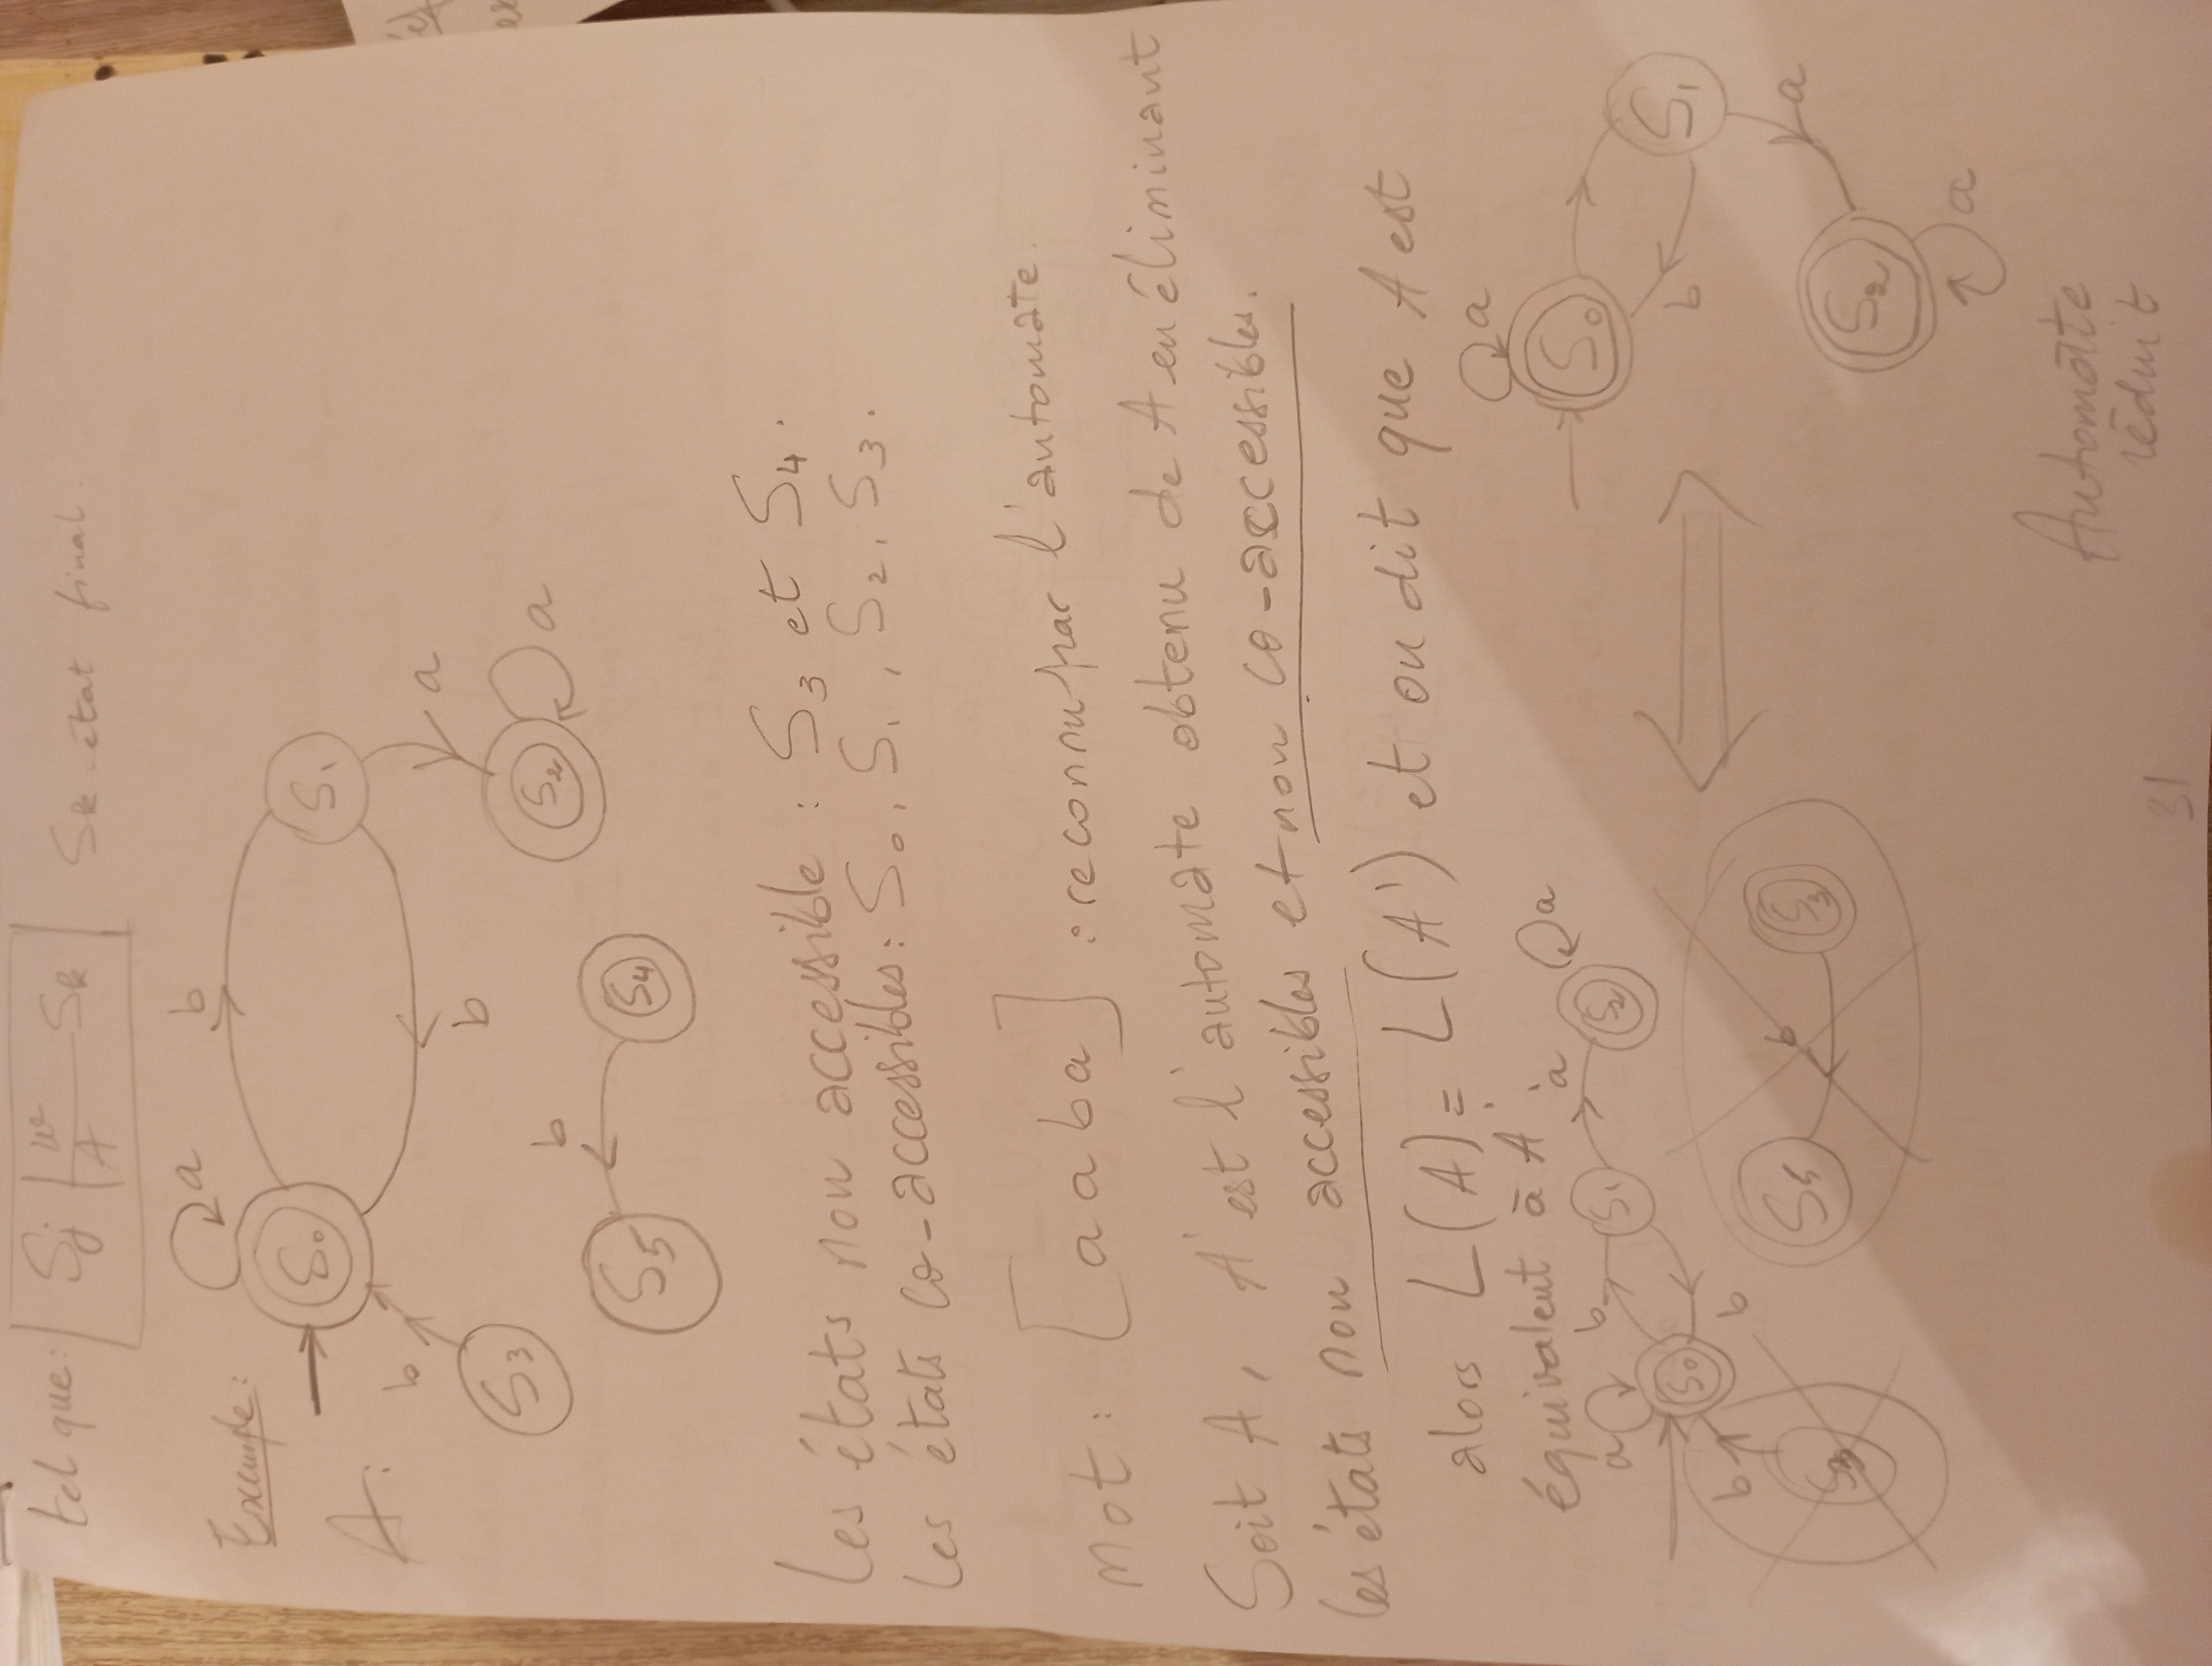 tel que: Sj |w/A— Sk Sk état final.
Exemple:
A:
a
b
S0
S1
b
a
b
S3
S2
a
b
S5
S4
Les états non accessible : S3 et S4.
Les états co-accessibles: S0, S1, S2, S3.
Mot: [aaba] : reconnu par l'automate.
Soit A, A' est l'automate obtenu de A en éliminant
les états non accessibles et non co-accessibles.
alors L(A) = L(A') et on dit que A est
équivalent à A'.
a
b
S1
a
S2
a
S0
b
b
S3
S5
b
S3
a
S0
S1
b
a
S2
a
Automate
réduit
31